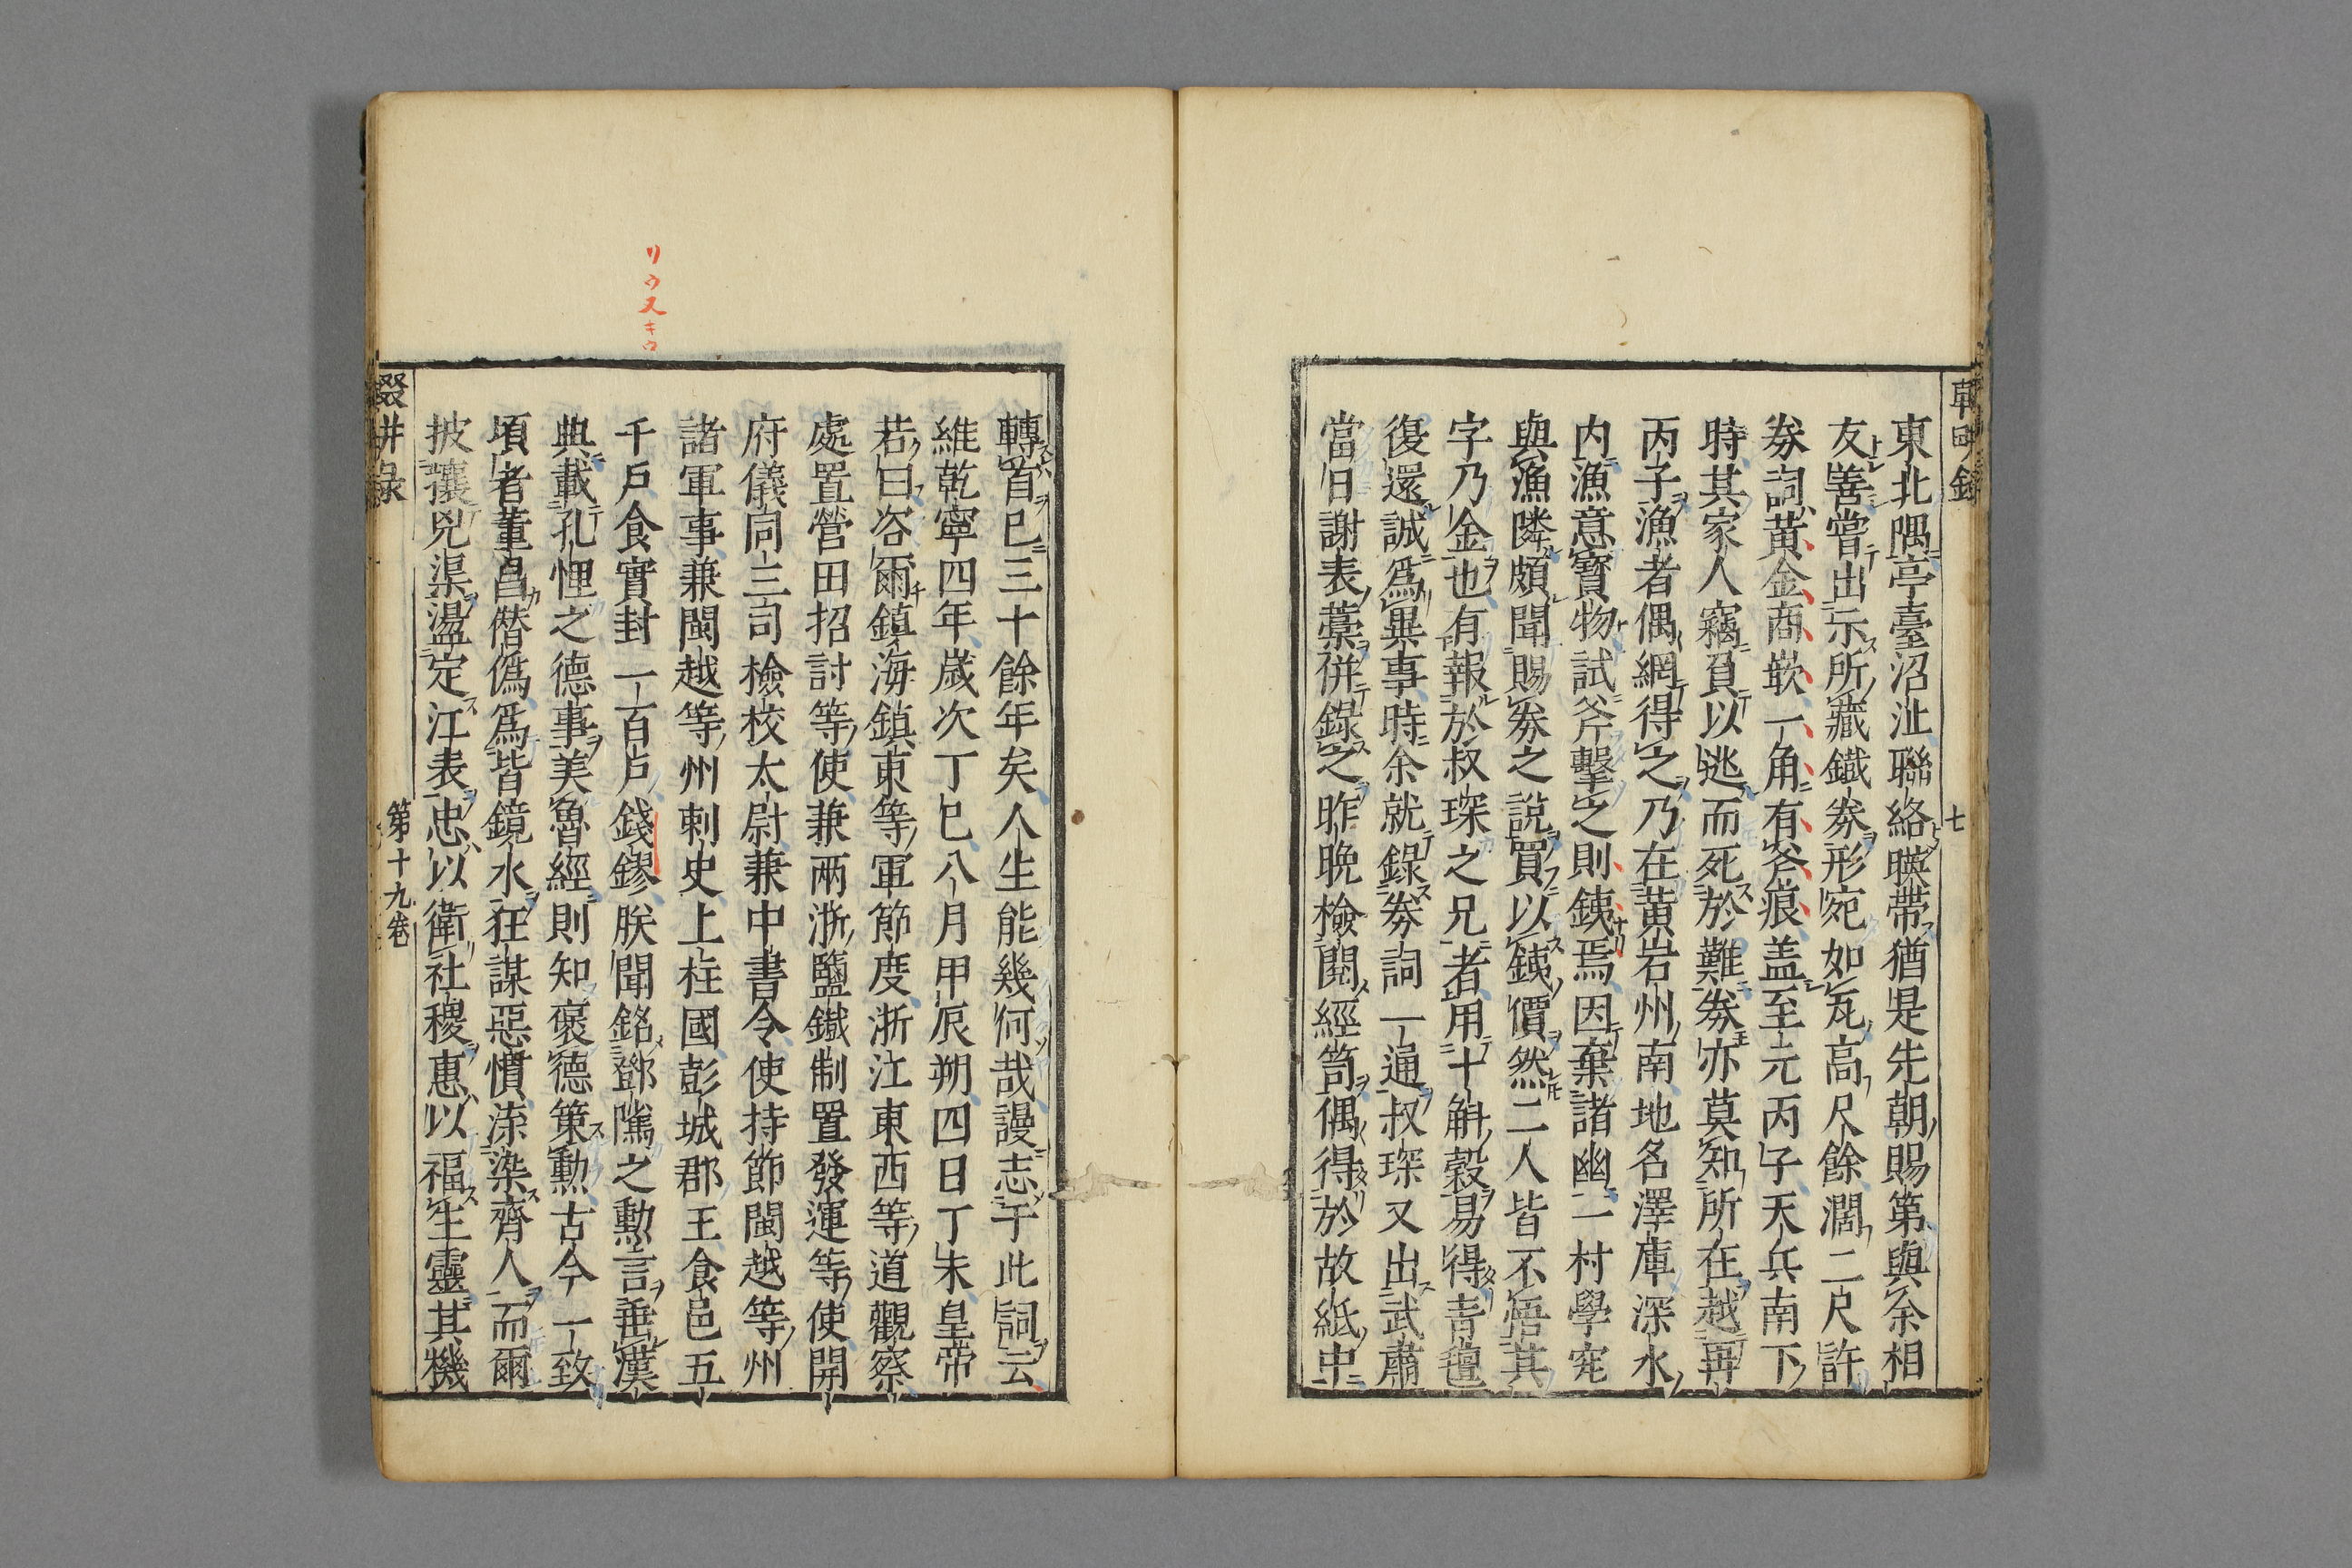 東北隅亭臺沼沚聯絡暎帶猶是先朝賜第與余相
友善嘗出示所藏鐵券形宛如瓦高尺餘濶二尺許
券詞黃金商嵌一角有斧痕盖至元丙子天兵南下
時其家人竊負以逃而死於難券亦莫知所在越再
丙子漁者偶網得之乃在黃岩州南地名澤庫深水
内漁意寶物試斧擊之則鐵焉因棄諸幽一村學究
與漁隣頗聞賜券之說買以鐵價然二人皆不悟其
字乃金也有報於叔琛之兄者用十斛穀易得青氊
復還誠爲異事時余就錄券詞一通叔琛又出武肅
當日謝表藁併錄之昨晩檢閱經笥偶得於故紙中
七
轉首已三十餘年矣人生能幾何哉謾志于此詞云
維乾寧四年歳次丁巳八月甲辰朔四日丁未皇帝
若曰咨爾鎮海鎮東等軍節度浙江東西等道觀察
處置營田招討等使兼兩浙鹽鐵制置發運等使開
府儀同三司檢校太尉兼中書令使持節閩越等州
諸軍事兼閩越等州刺史上柱國彭城郡王食邑五
千戶食實封一百戶錢鏐朕聞銘鄧隲之勳言垂漢
典載孔悝之德事美魯經則知褒德策勳古今一致
頃者董昌僣僞爲昏鏡水狂謀惡慣渿染齊人而爾
披攘兇渠盪定江表忠以衛社稷惠以福生靈其機
輟畊録
第十九巻
リウ又キウ